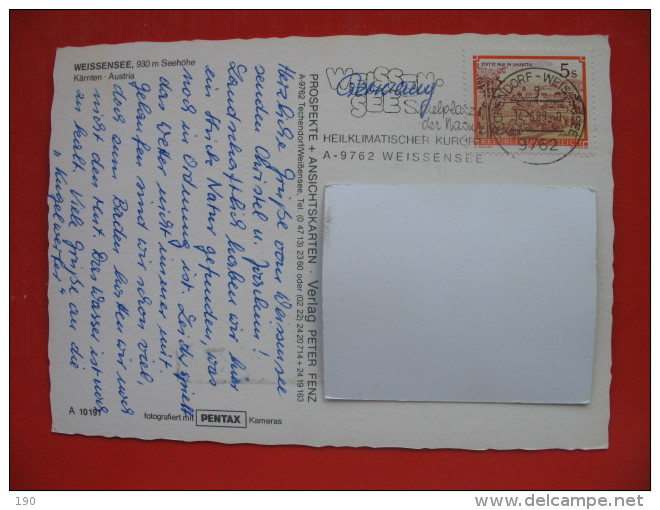 WEISSENSEE, 930 m Seehöhe
Kärnten · Austria
Herzliche Grüße vom Weissensee
senden Christel u. Joachim!
Landschaftlich haben wir hier
ein Stück Natur gefunden, was
noch in Ordnung ist. Leider spielt
das Wetter nicht immer mit.
Gelaufen sind wir schon viel,
doch zum Baden hatten wir noch
nicht den Mut. Das Wasser ist noch
zu kalt. Viele Grüße an die
"Kugelwerfer"
A 10191
fotografiert mit PENTAX Kameras
PROSPEKTE + ANSICHTSKARTEN · Verlag PETER FENZ
A-9762 Techendorf/Weißensee, Tel. (0 47 13) 23 60 oder (02 22) 24 20 714 + 24 19 163
WEISSEN-
SEE Spielplatz
der Natur
HEILKLIMATISCHER KURORT
A-9762 WEISSENSEE
STIFT ST. PAUL IM LAVANTTAL
5 S
REPUBLIK ÖSTERREICH
TECHENDORF-WEISSENSEE
9762
190
delcampe.net